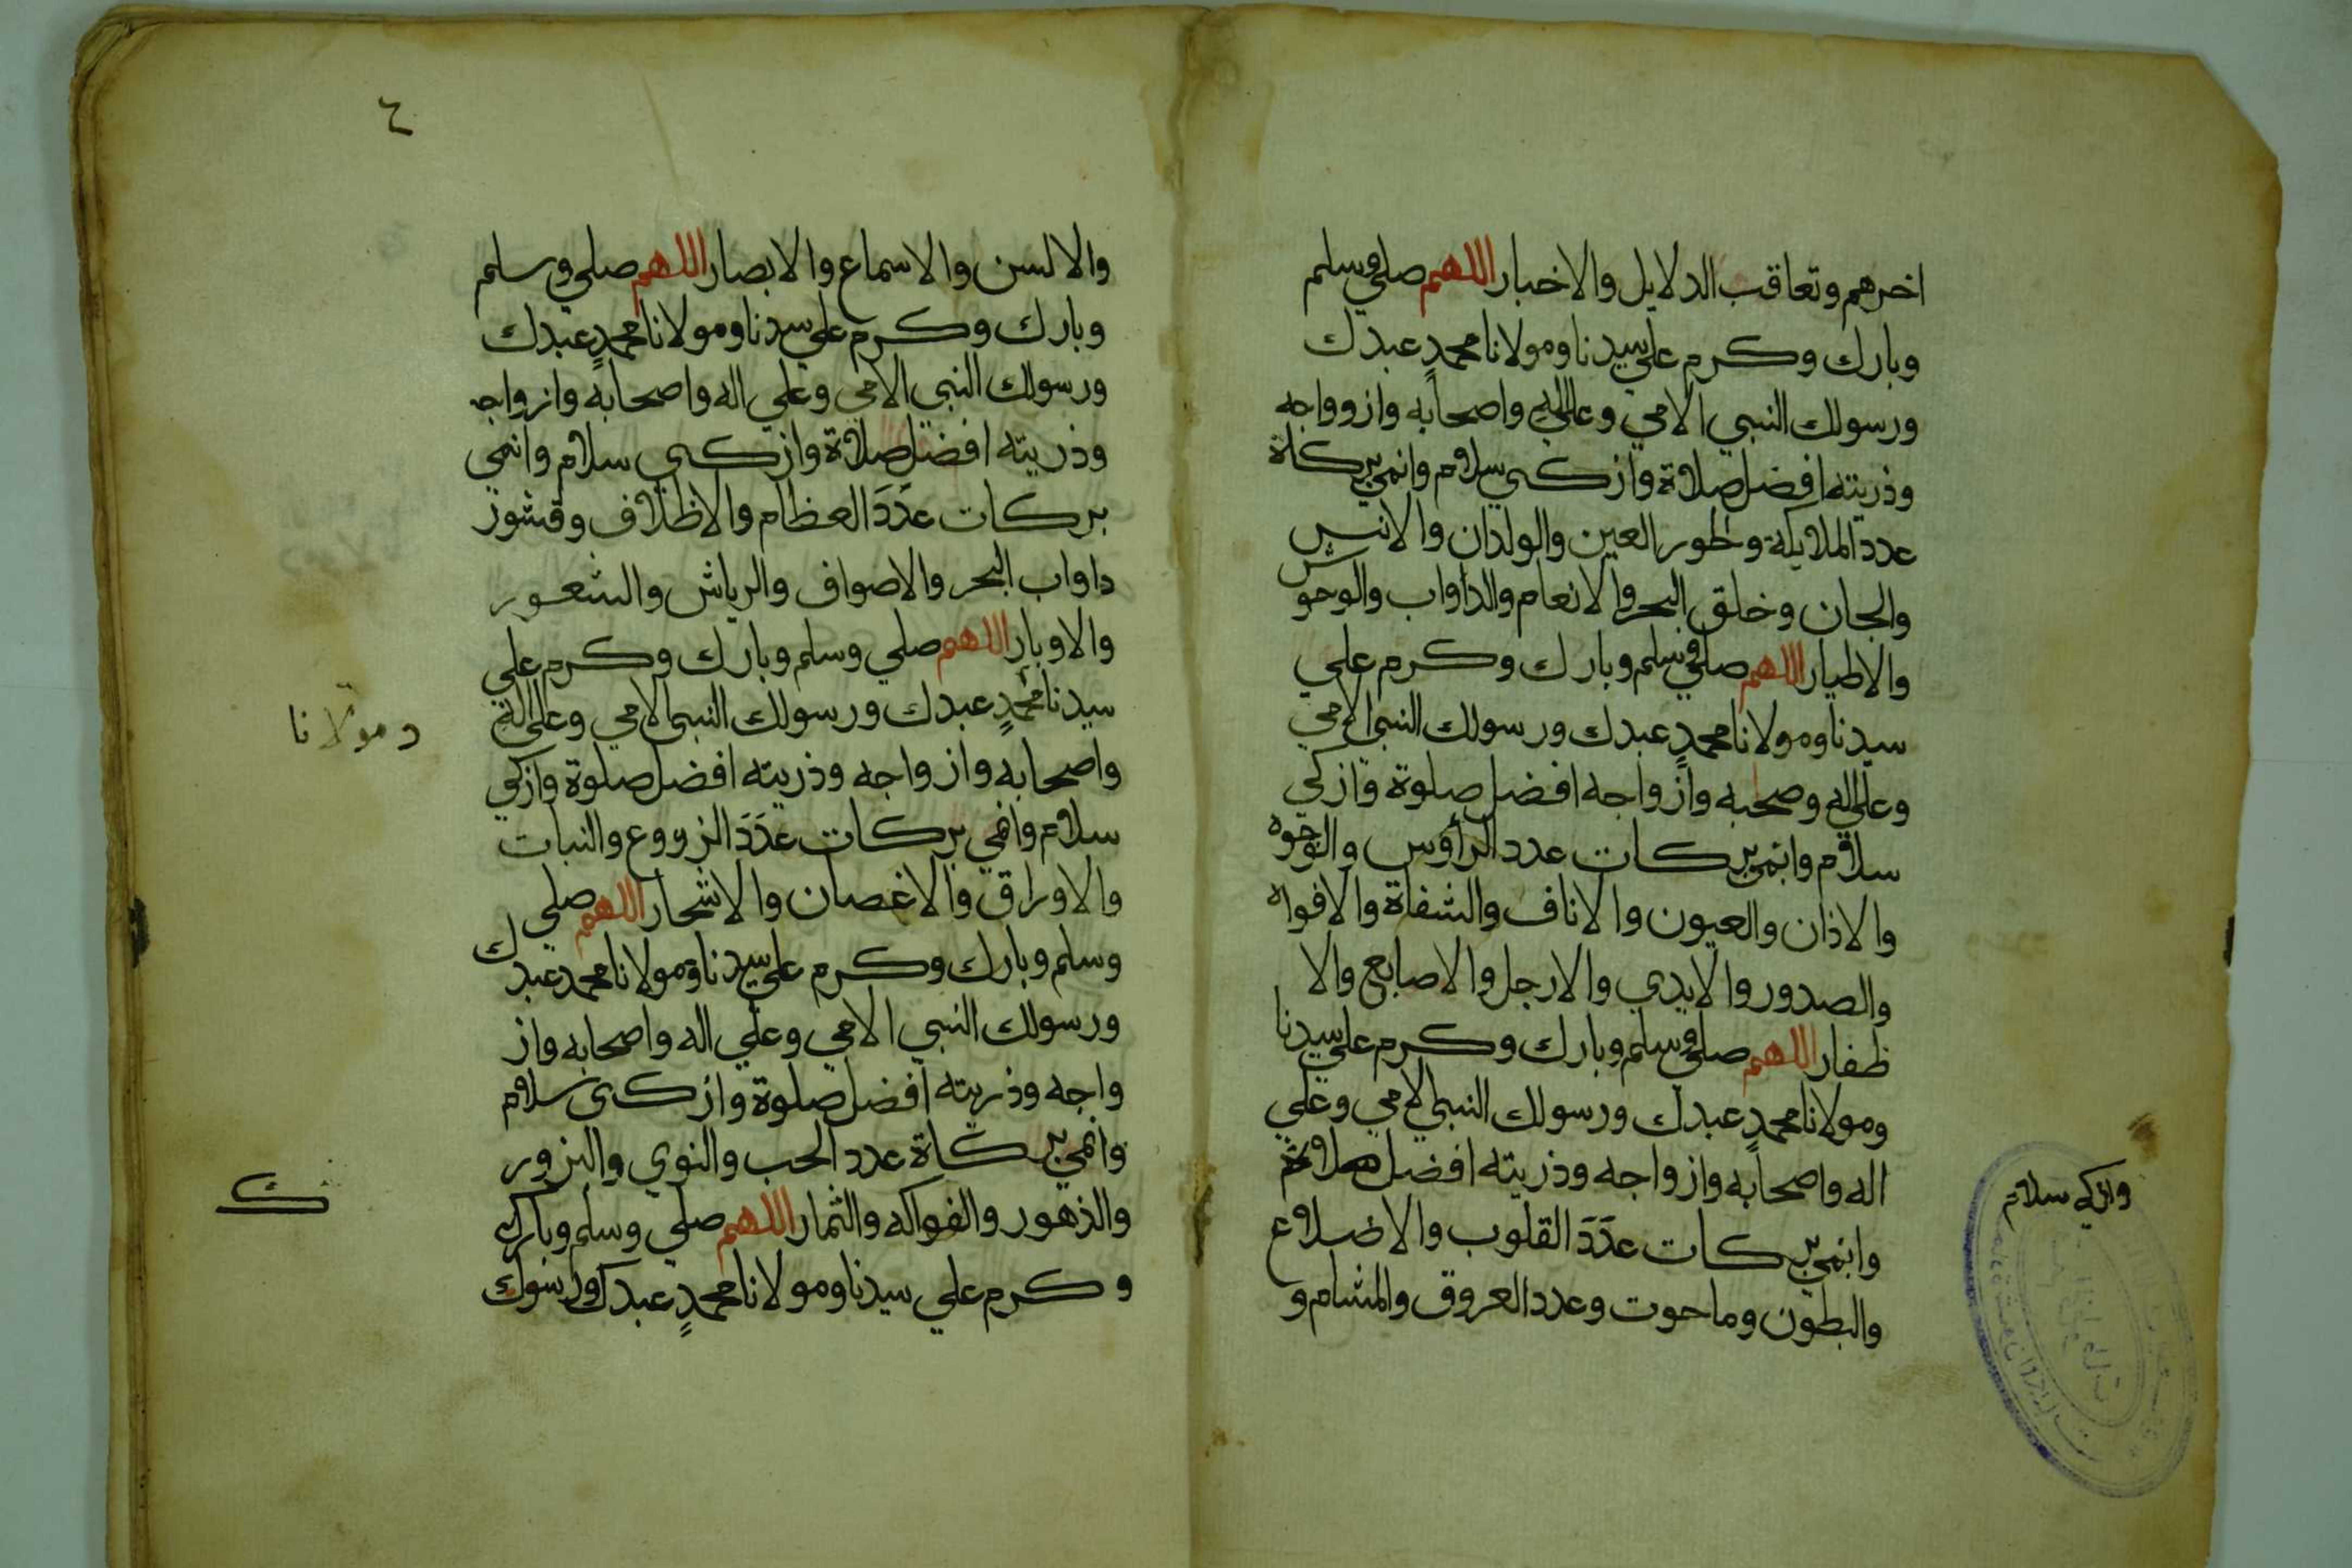 اخرهم وتعاقب الدلايل والاخبار اللهم صلي وسلم
وبارك وكرم علي سيدنا ومولانا محمدٍ عبدك
ورسولك النبي الامي وعلي اله واصحابه وازوواجه
وذريته افضل صلاة وازكي سلام وانمي بركاة
عدد الملايكة والحور العين والولدان والانس
والجان وخلق البحر والانعام والداواب والوحوش
والاطيار اللهم صلي وسلم وبارك وكرم علي
سيدنا ومولانا محمدٍ عبدك ورسولك النبي الامي
وعلي اله وصحبه وازواجه افضل صلوة وازكي
سلام وانمي بركات عدد الرأوس والوجوه
والاذان والعيون والاناف والشفاة والافواه
والصدور والايدي والارجل والاصابع والا
ظفار اللهم صلي وسلم وبارك وكرم علي سيدنا
ومولانا محمدٍ عبدك ورسولك النبي الامي وعلي
اله واصحابه وازواجه وذريته افضل صلاة
وازكي سلام
وانمي بركات عدَدَ القلوب والاضلاع
والبطون وما حوت وعدد العروق والمشام و
٤
والالسن والاسماع والابصار اللهم صلي وسلم
وبارك وكرم علي سيدنا ومولانا محمدٍ عبدك
ورسولك النبي الامي وعلي اله واصحابه وازواجه
وذريته افضل صلاة وازكي سلام وانمي
بركات عدَدَ العظام والاظلاف وقشور
داواب البحر والاصواف والرياش والشعور
والاوبار اللهم صلي وسلم وبارك وكرم علي
سيدنا محمدٍ عبدك ورسولك النبي الامي وعلي اله
ومولانا
واصحابه وازواجه وذريته افضل صلوة وازكي
سلام وانمي بركات عدَدَ الزرووع والنبات
والاوراق والاغصان والاشجار اللهم صلي
وسلم وبارك وكرم علي سيدنا ومولانا محمد عبدك
ورسولك النبي الامي وعلي اله واصحابه واز
واجه وذريته افضل صلوة وازكي سلام
وانمي بركاة عدد الحب والنوي والبزور
والذهور والفواكه والثمار اللهم صلي وسلم وبارك
ك
وكرم علي سيدنا ومولانا محمدٍ عبدك ورسولك